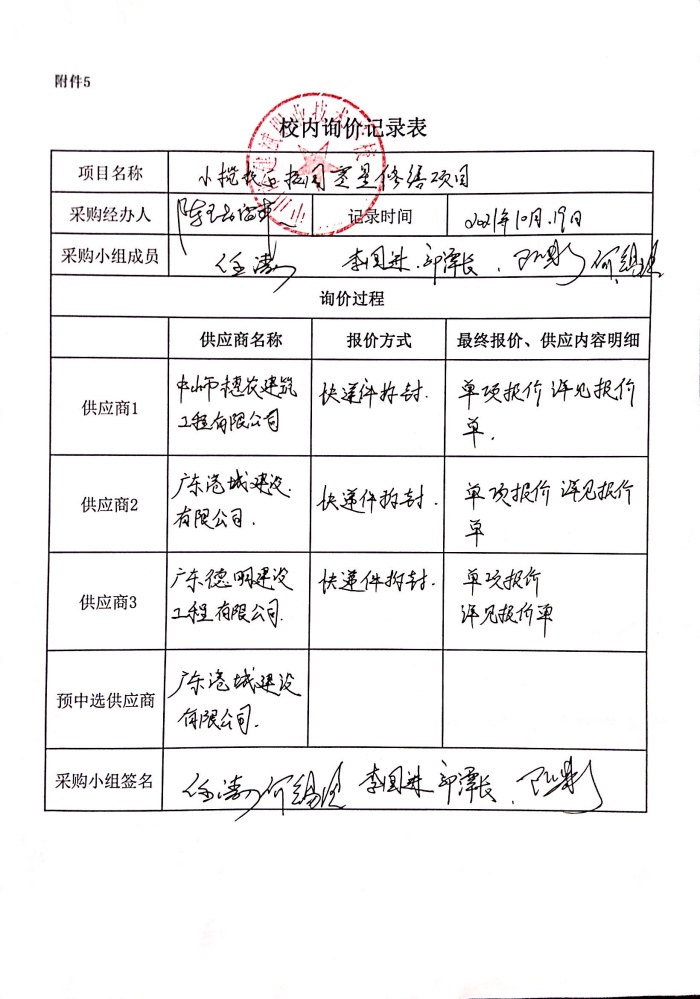 附件5
校内询价记录表
项目名称 小榄校区校园零星修缮项目
采购经办人 记录时间 2021年10月.19日
采购小组成员 任涛 李国林.邱潭长.
询价过程
供应商名称 报价方式 最终报价、供应内容明细
供应商1
中山市穗农建筑
工程有限公司
快递件拆封.
单项报价 详见报价
单.
供应商2
广东港城建设
有限公司.
快递件拆封.
单项报价 详见报价
单
供应商3
广东德明建设
工程有限公司.
快递件拆封.
单项报价
详见报价单
预中选供应商
广东港城建设
有限公司.
采购小组签名 任涛 李国林 邱潭长.